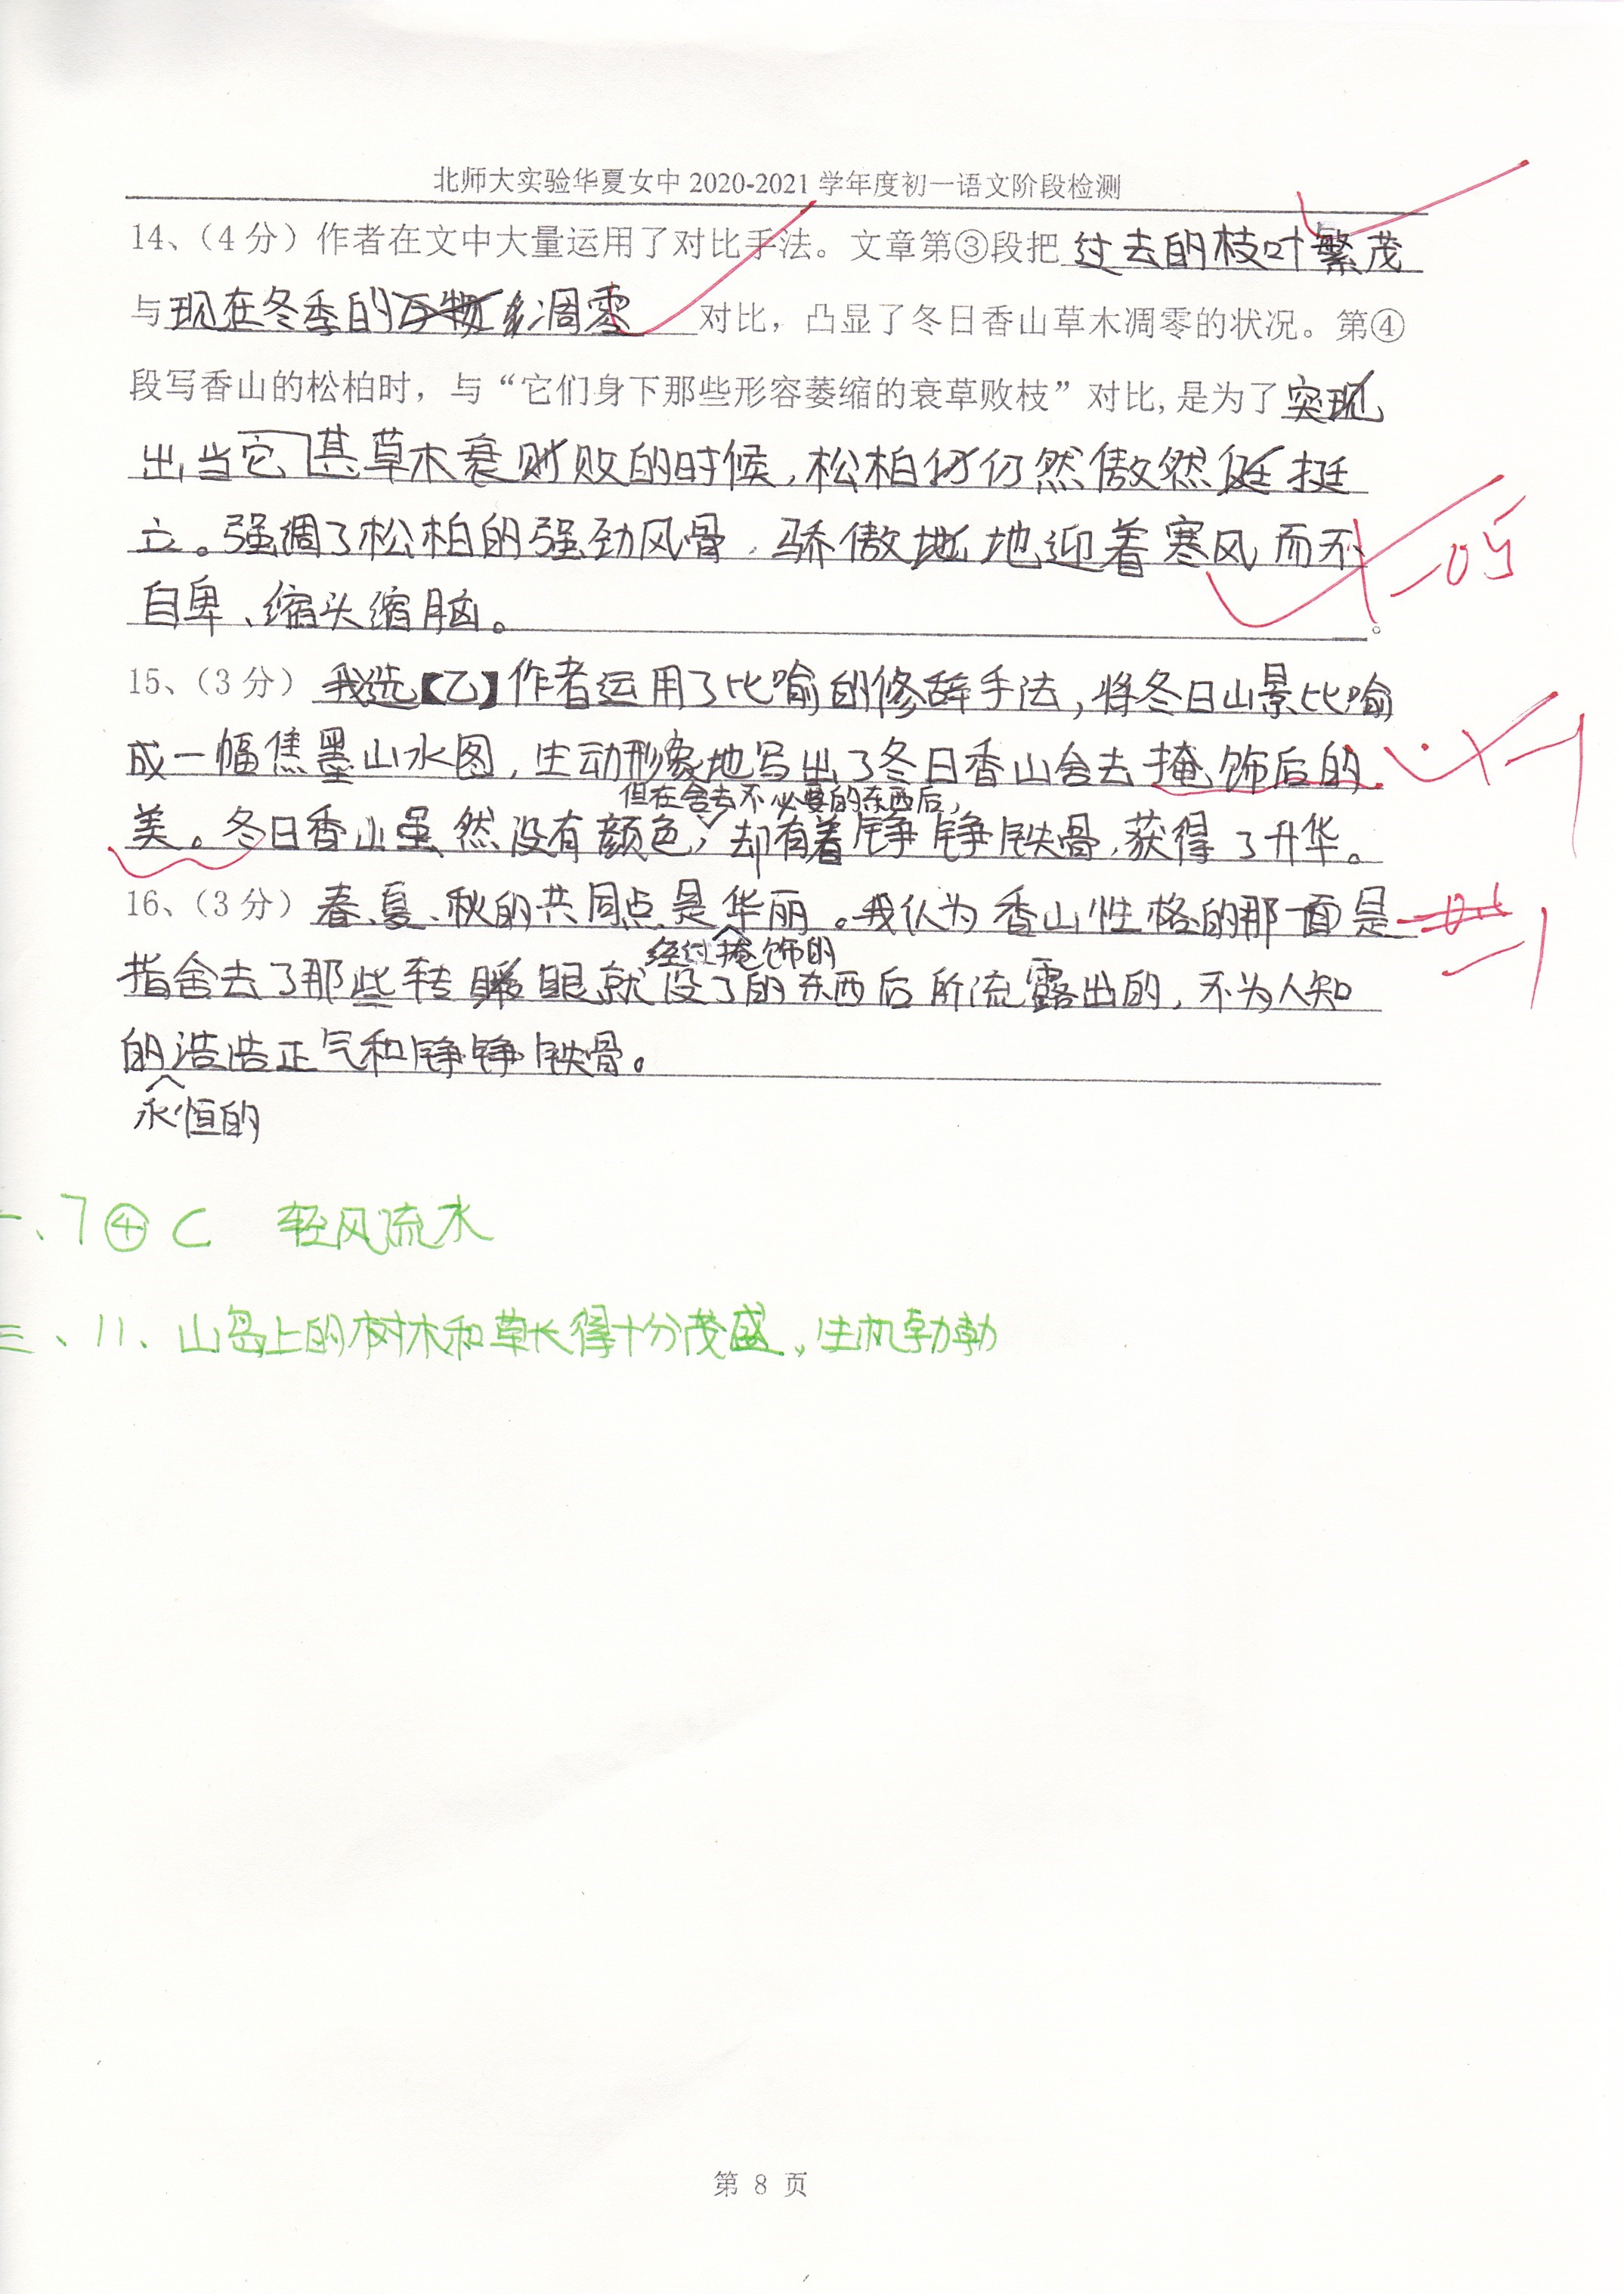 北师大实验华夏女中 2020-2021 学年度初一语文阶段检测
14、（4 分）作者在文中大量运用了对比手法。文章第③段把 过去的枝叶繁茂
与 现在冬季的凋零 对比，凸显了冬日香山草木凋零的状况。第④
段写香山的松柏时，与“它们身下那些形容萎缩的衰草败枝”对比, 是为了 突
出当其它草木衰败的时候，松柏仍然傲然挺
立。强调了松柏的强劲风骨，骄傲地迎着寒风而不
-0.5
自卑、缩头缩脑。 。
15、（3 分） 我选【乙】作者运用了比喻的修辞手法，将冬日山景比喻
成一幅焦墨山水图，生动形象地写出了冬日香山舍去掩饰后的
-1
但在舍去不必要的东西后，
美。冬日香山虽然没有颜色，却有着铮铮铁骨，获得了升华。
16、（3 分） 春、夏、秋的共同点是华丽。我认为香山性格的那一面是
-1
经过掩饰的
指舍去了那些转眼就没了的东西后所流露出的，不为人知
的浩浩正气和铮铮铁骨。
永恒的
一、7 ④ C 轻风流水
三、11、山岛上的树木和草长得十分茂盛，生机勃勃
第 8 页